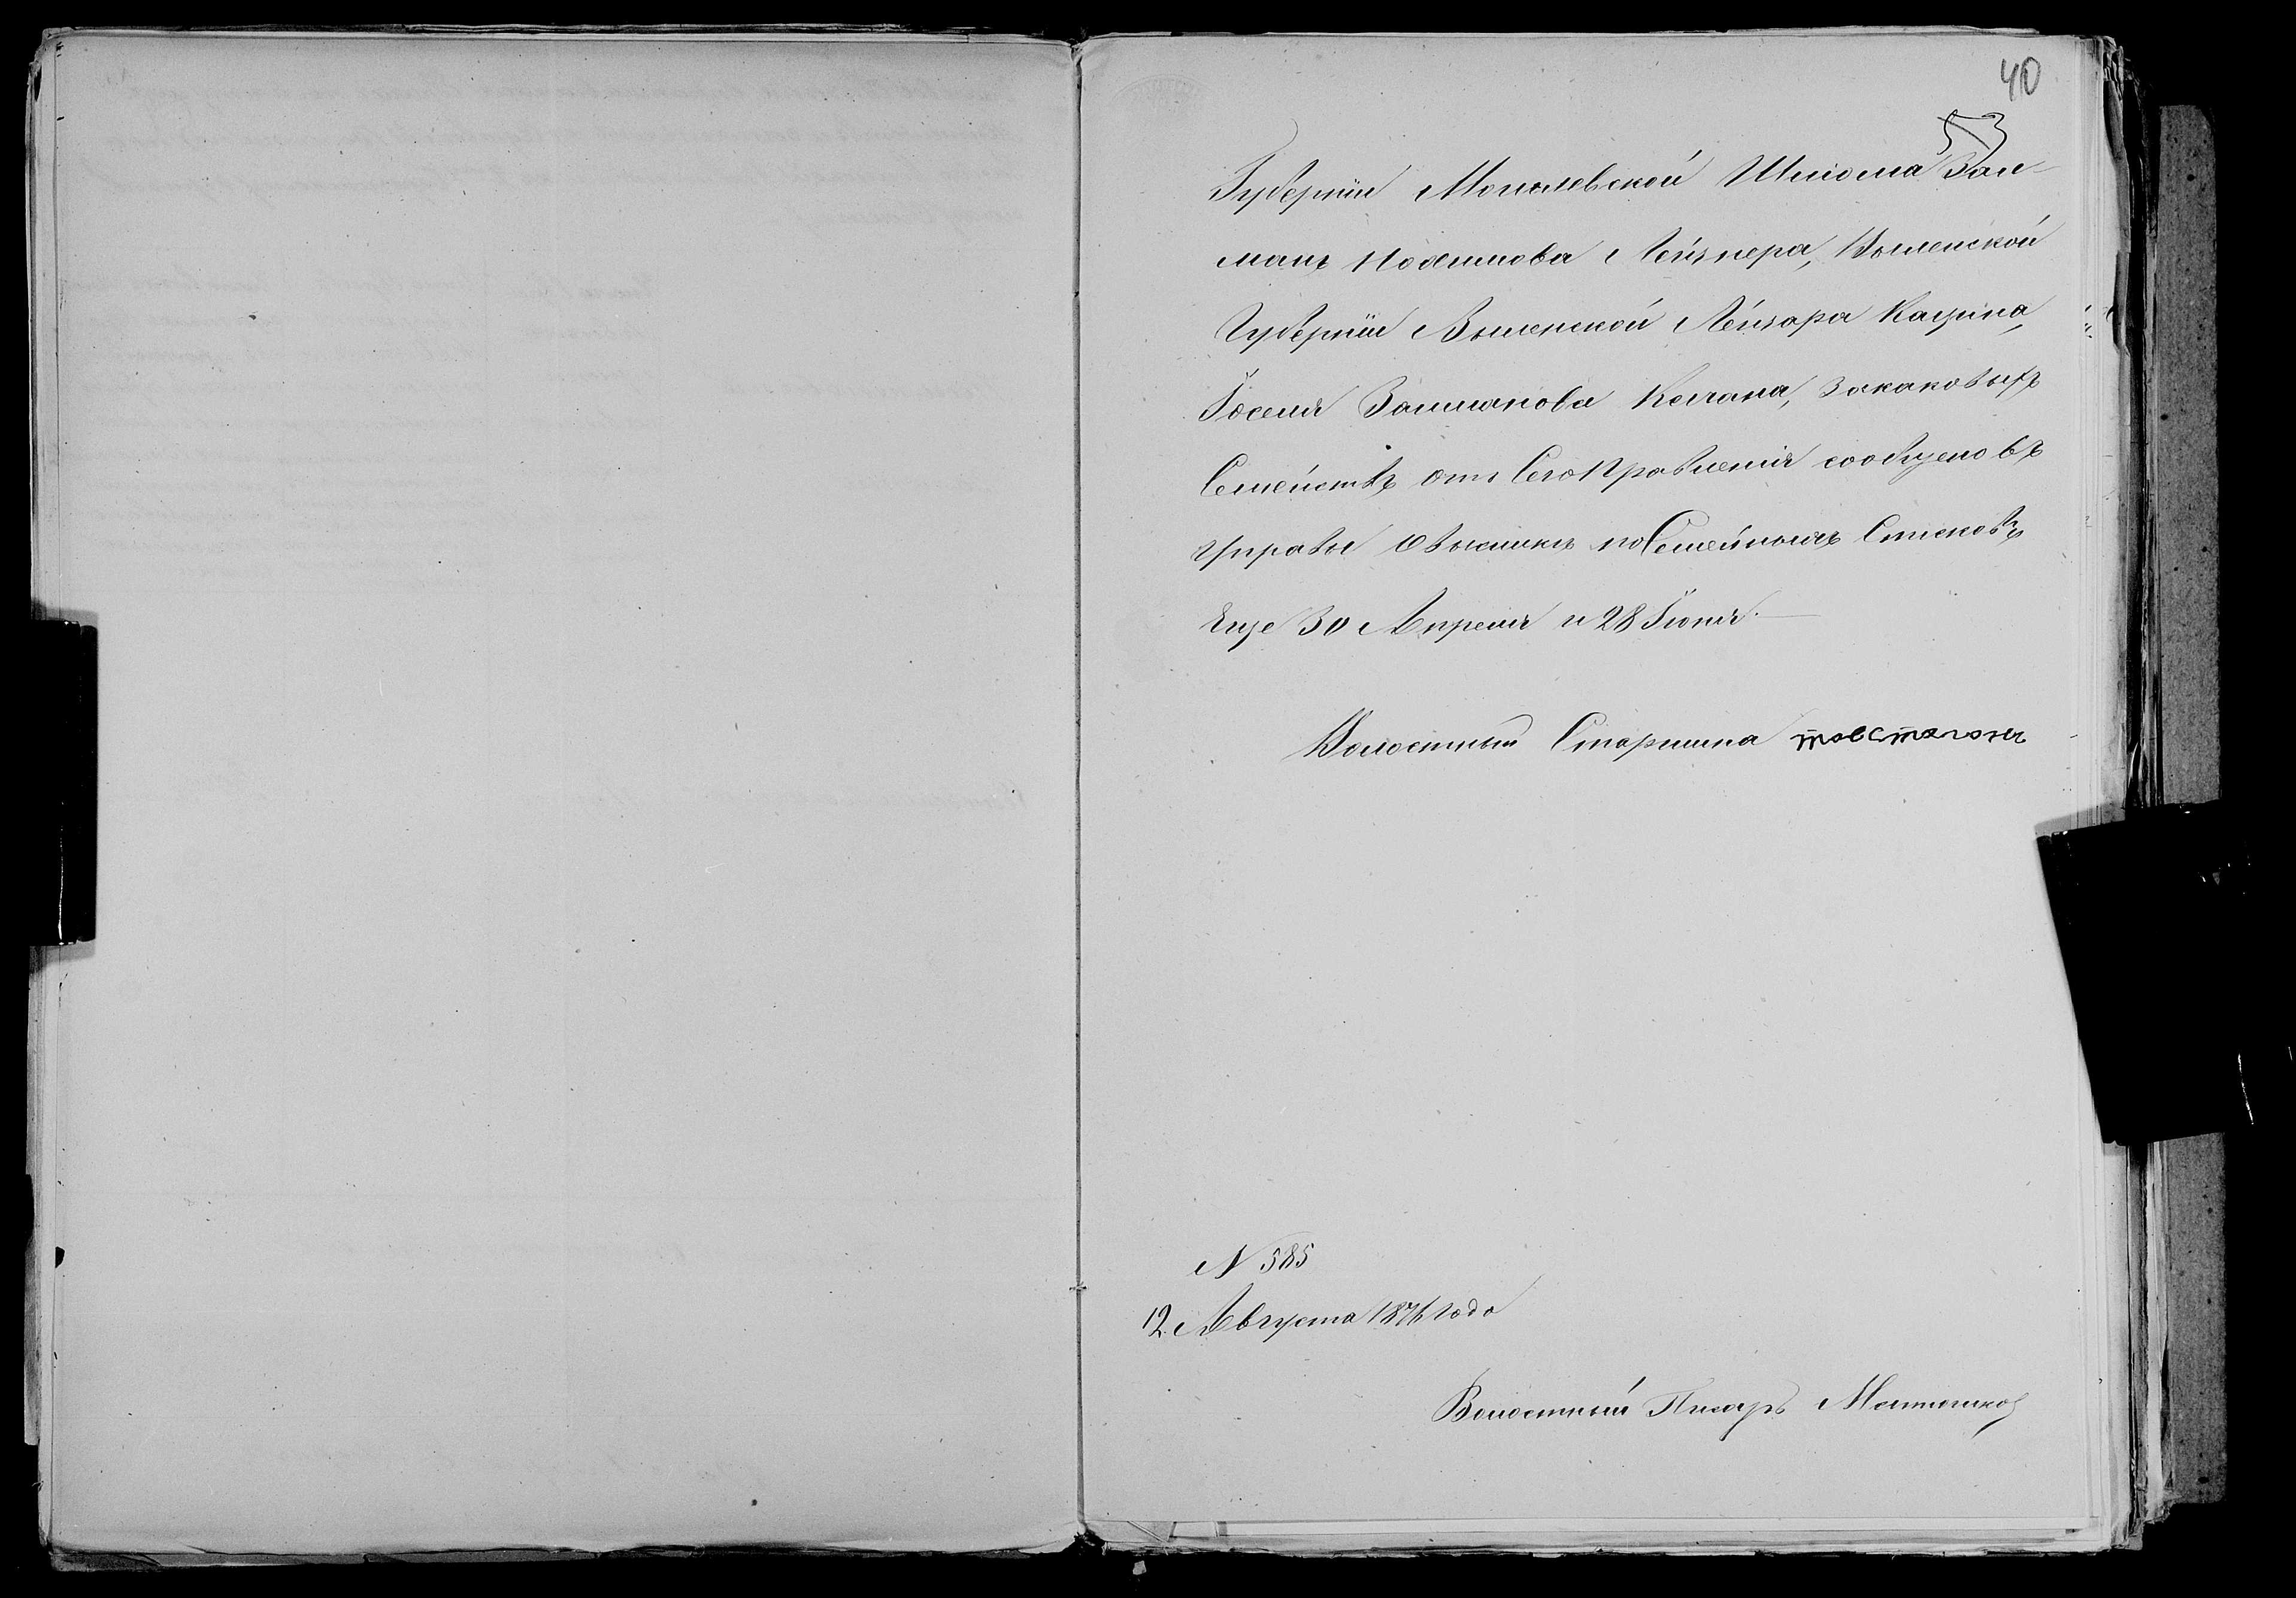 40
53
Губерніи Могилевской Шлиома Зал-
манъ Нохимова Лейзнера, Виленской
Губерніи Виленской Лейзара Кацина,
Іоселя Залманова Когана, за каковыхъ
Семействъ отъ Сего Правленія сообщено въ
Управы Овысылки по Семейныхъ Списковъ
Еще 30 Апреля и 28 Іюня
Волостный Старшина
N 585
12 Августа 1876 года
Волостный Писарь